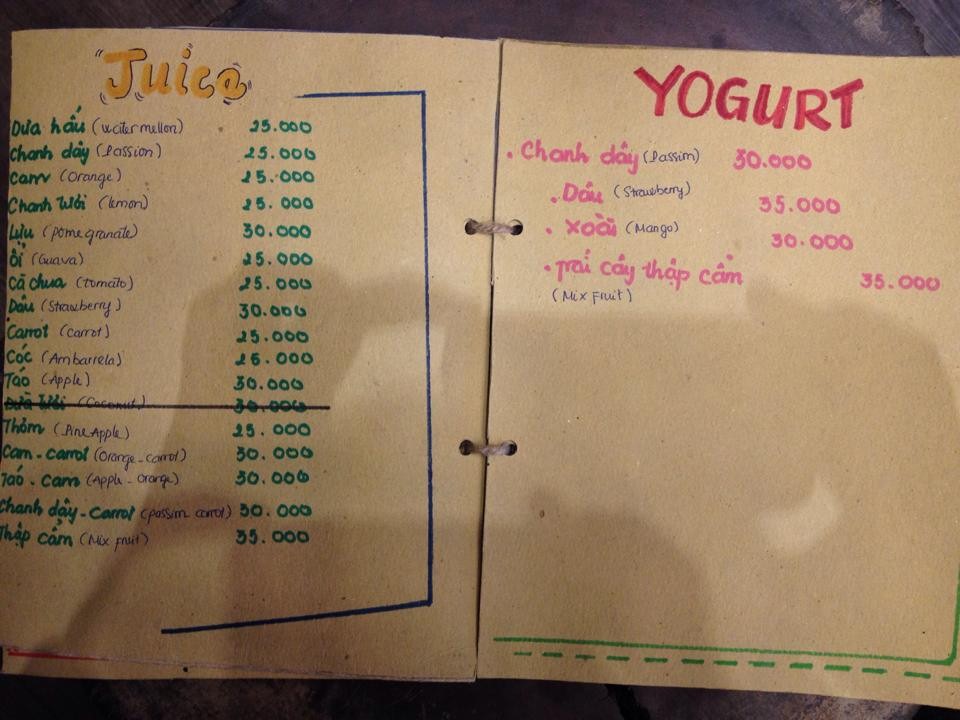 Juice
Dưa hấu (watermellon) 25.000
Chanh dây (Passion) 25.000
Cam (Orange) 25.000
Chanh tươi (lemon) 25.000
Lựu (pomegranate) 30.000
Ổi (Guava) 25.000
Cà chua (tomato) 25.000
Dâu (Strawberry) 30.000
Carrot (carrot) 25.000
Cóc (Ambarrela) 25.000
Táo (Apple) 30.000
Dừa tươi (Coconut) 30.000
Thơm (PineApple) 25.000
Cam - carrot (Orange - carrot) 30.000
Táo - Cam (Apple - Orange) 30.000
Chanh dây - Carrot (passion carrot) 30.000
Thập cẩm (Mix fruit) 35.000
YOGURT
• Chanh dây (Passion) 30.000
• Dâu (Strawberry) 35.000
• Xoài (Mango) 30.000
• Trái cây thập cẩm 35.000
(Mix Fruit)